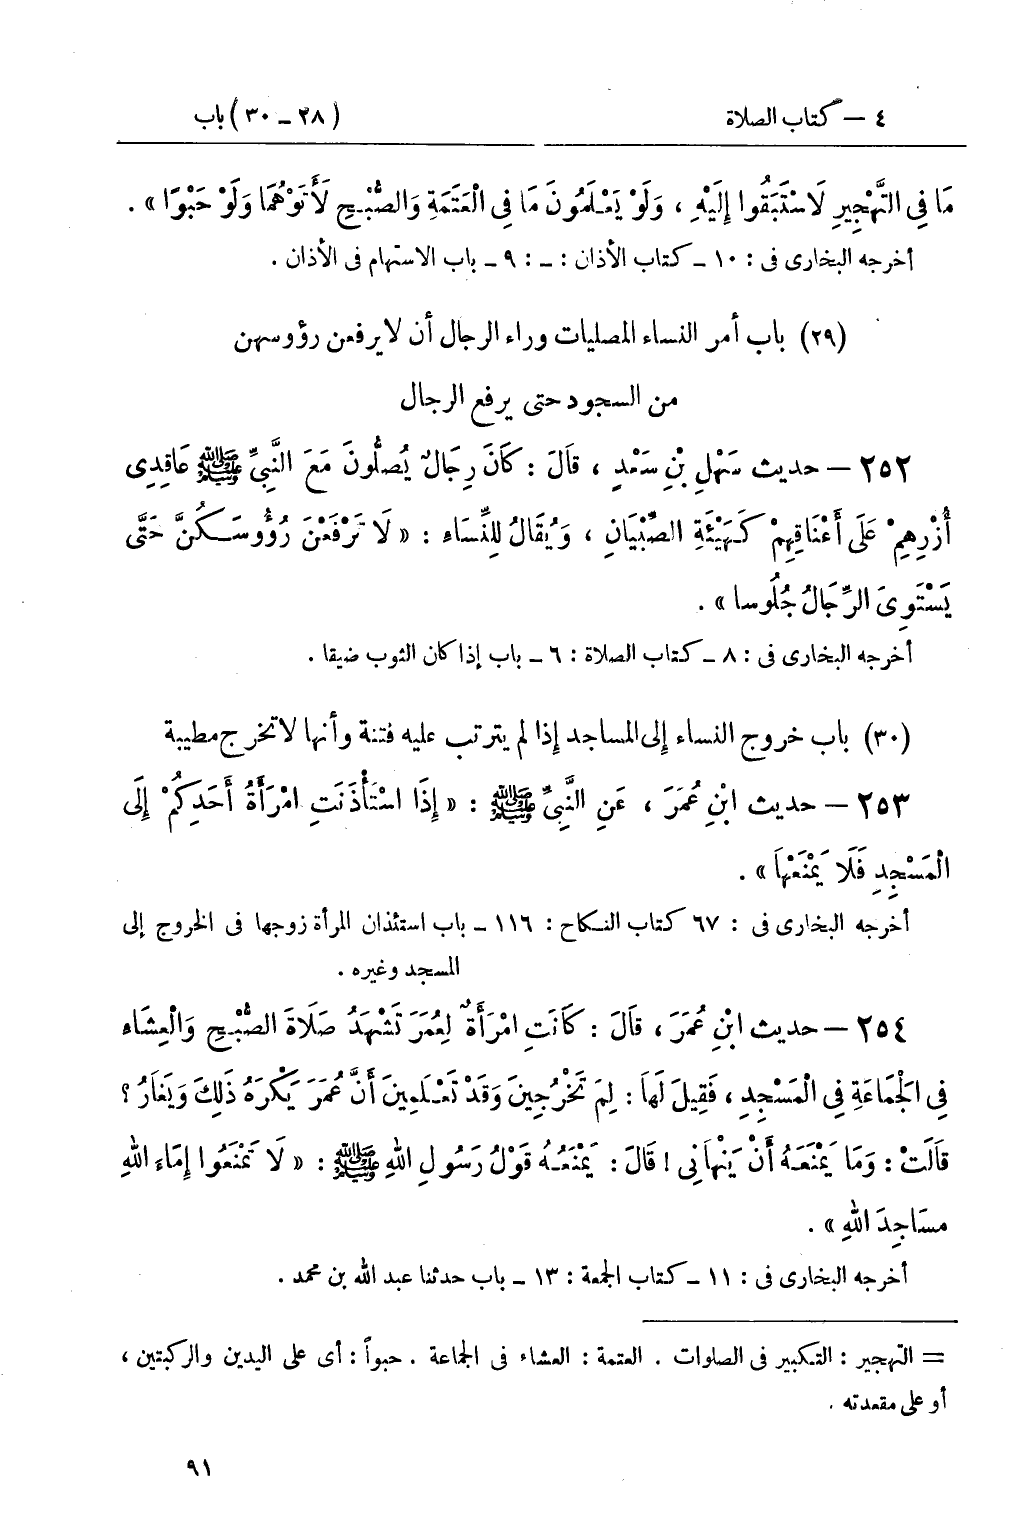 ٤ — كتاب الصلاة
(٢٨ ــ ٣٠) باب
مَا فِى التَّهْجِيرِ لَاسْتَبَقُوا إِلَيْهِ ، وَلَوْ يَعْلَمُونَ مَا فِى الْعَتَمَةِ وَالصُّبْحِ لَأَتَوْهُمَا وَلَوْ حَبْوًا » .
أخرجه البخارى فى : ١٠ ــ كتاب الأذان : ــ : ٩ ــ باب الاستهام فى الأذان .
(٢٩) باب أمر النساء المصليات وراء الرجال أن لا يرفعن رؤوسهن
من السجود حتى يرفع الرجال
٢٥٢ — حديث سَهْلِ بْنِ سَعْدٍ ، قَالَ : كَانَ رِجَالٌ يُصَلُّونَ مَعَ النَّبِىِّ ﷺ عَاقِدِى
أُزْرِهِمْ عَلَى أَعْنَاقِهِمْ كَهَيْئَةِ الصِّبْيَانِ ، وَيُقَالُ لِلنِّسَاءِ : « لَا تَرْفَعْنَ رُؤُوسَكُنَّ حَتَّى
يَسْتَوِىَ الرِّجَالُ جُلُوسا » .
أخرجه البخارى فى : ٨ ــ كتاب الصلاة : ٦ ــ باب إذا كان الثوب ضيقا .
(٣٠) باب خروج النساء إلى المساجد إذا لم يترتب عليه فتنة وأنها لا تخرج مطيبة
٢٥٣ — حديث ابْنِ عُمَرَ ، عَنِ النَّبِىِّ ﷺ : « إِذَا اسْتَأْذَنَتِ امْرَأَةُ أَحَدِكُمْ إِلَى
الْمَسْجِدِ فَلَا يَمْنَعْهَا » .
أخرجه البخارى فى : ٦٧ كتاب النكاح : ١١٦ ــ باب استئذان المرأة زوجها فى الخروج إلى
المسجد وغيره .
٢٥٤ — حديث ابْنِ عُمَرَ ، قَالَ : كَانَتِ امْرَأَةٌ لِعُمَرَ تَشْهَدُ صَلَاةَ الصُّبْحِ وَالْعِشَاءِ
فِى الْجَمَاعَةِ فِى الْمَسْجِدِ ، فَقِيلَ لَهَا : لِمَ تَخْرُجِينَ وَقَدْ تَعْلَمِينَ أَنَّ عُمَرَ يَكْرَهُ ذَلِكَ وَيَغَارُ ؟
قَالَتْ : وَمَا يَمْنَعَهُ أَنْ يَنْهَانِى ! قَالَ : يَمْنَعُهُ قَوْلُ رَسُولِ اللهِ ﷺ : « لَا تَمْنَعُوا إِمَاءَ اللهِ
مسَاجِدَ اللهِ » .
أخرجه البخارى فى : ١١ ــ كتاب الجمعة : ١٣ ــ باب حدثنا عبد الله بن محمد .
= التهجير : التكبير فى الصلوات . العتمة : العشاء فى الجماعة . حبواً : أى على اليدين والركبتين ،
أو على مقعدته .
٩١